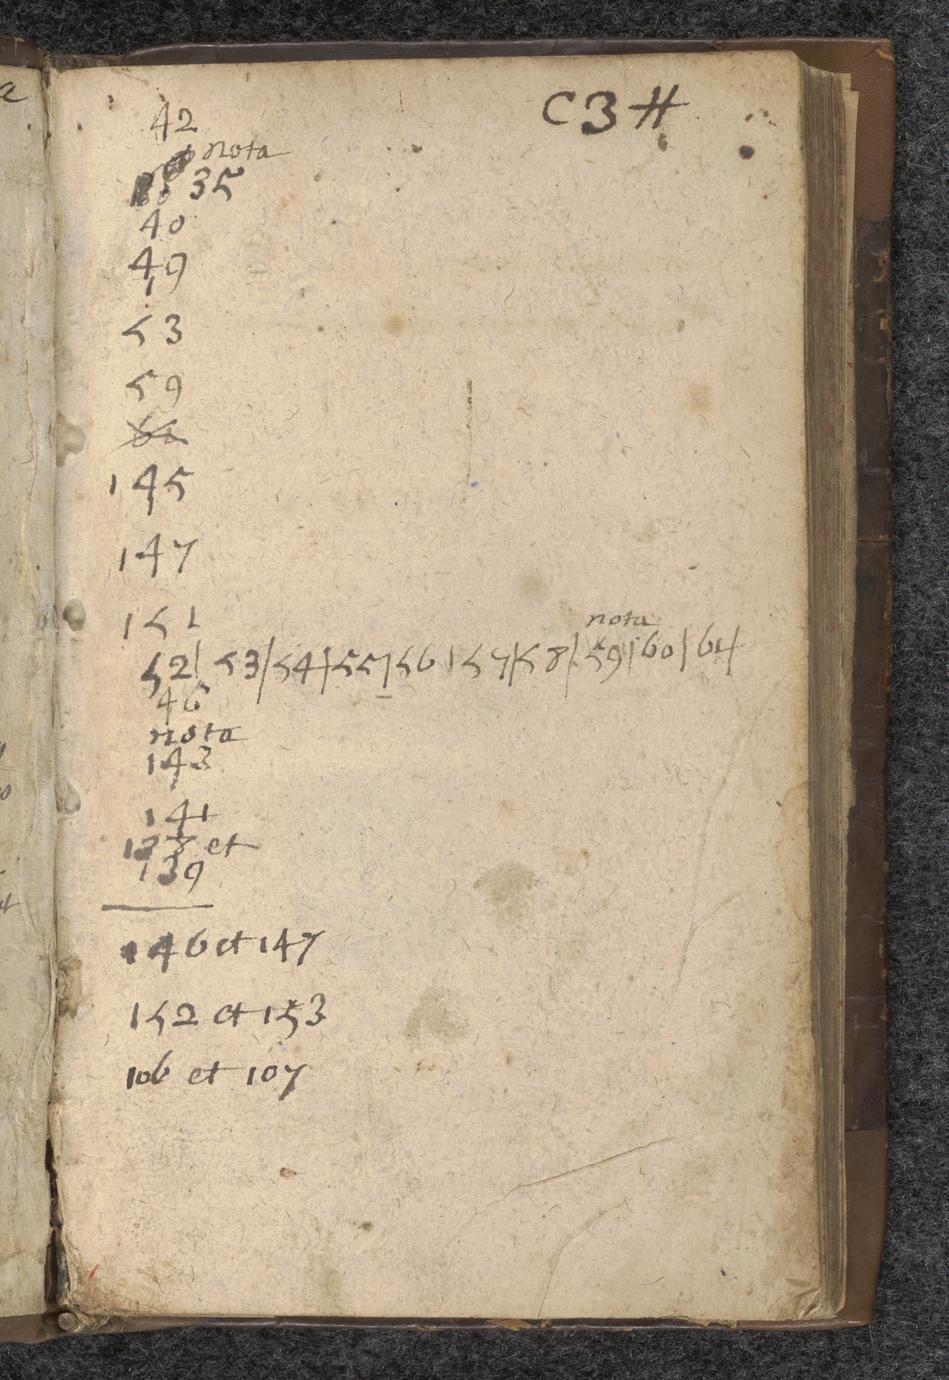 C3#
42
nota
35
40
49
53
59
145
147
151
nota
52| 53|54|55|56|57|58|59|60|64
46
nota
143
141
138 et
139
146 et 147
152 et 153
106 et 107